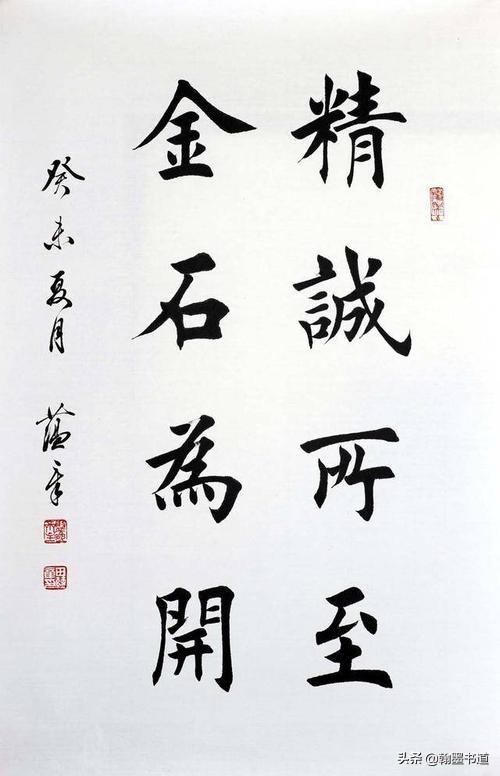 精誠所至
金石為開
癸未夏月 蘊章
头条 @翰墨书道